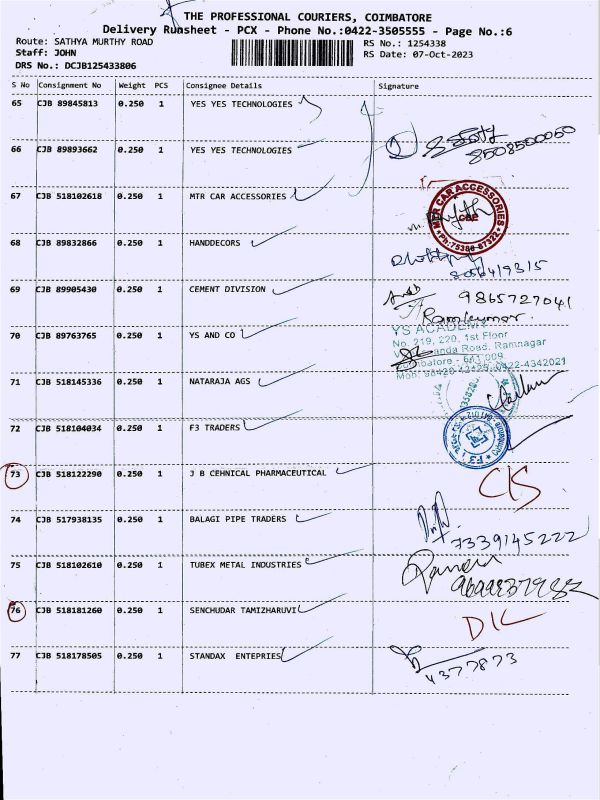 THE PROFESSIONAL COURIERS, COIMBATORE
Delivery Runsheet - PCX - Phone No.:0422-3505555 - Page No.:6
Route: SATHYA MURTHY ROAD
RS No.: 1254338
Staff: JOHN
RS Date: 07-Oct-2023
DRS No.: DCJB125433806
S No Consignment No Weight PCS Consignee Details Signature
65 CJB 89845813 0.250 1 YES YES TECHNOLOGIES
66 CJB 89893662 0.250 1 YES YES TECHNOLOGIES
8508500050
67 CJB 518102618 0.250 1 MTR CAR ACCESSORIES
MTR CAR ACCESSORIES
CBE
Ph:75388-87322
68 CJB 89832866 0.250 1 HANDDECORS
69 CJB 89905430 0.250 1 CEMENT DIVISION
9865727041
Ramkumar.
70 CJB 89763765 0.250 1 YS AND CO
YS ACADEMY
No. 219, 220, 1st Floor
Road, Ramnagar
Coimbatore - 641 009.
Mob: 98420-42425, 0422-4342021
71 CJB 518145336 0.250 1 NATARAJA AGS
72 CJB 518104034 0.250 1 F3 TRADERS
73 CJB 518122290 0.250 1 J B CEHNICAL PHARMACEUTICAL
C/S
74 CJB 517938135 0.250 1 BALAGI PIPE TRADERS
7339145222
75 CJB 518102610 0.250 1 TUBEX METAL INDUSTRIES
76 CJB 518181260 0.250 1 SENCHUDAR TAMIZHARUVI
D/L
77 CJB 518178505 0.250 1 STANDAX ENTEPRIES
4377873